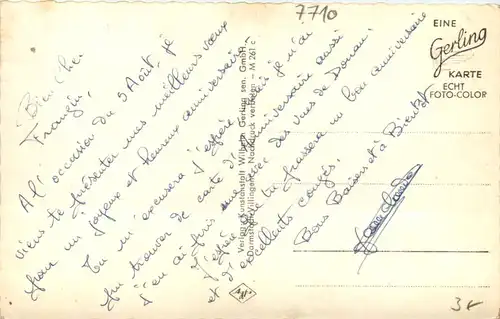 7710
EINE
Gerling
KARTE
ECHT
FOTO-COLOR
Bien Cher
Frangin,
A l'occasion du 5 Août, je
viens te présenter mes meilleurs vœux
pour un joyeux et heureux anniversaire.
Tu m'excusera j'espère si je n'ai
pu trouver de carte d'anniversaire aussi
j'en ai pris une avec des vues de Douan.
J'espère que tu passera un bon anniversaire
et d'excellents congés.
Bons Baisers et à Bientôt
Verlag u. Kunstanstalt Wilhelm Gerling sen. GmbH.
Darmstadt/Villingen/Schw. Nachdruck verboten - M 261 c
3€